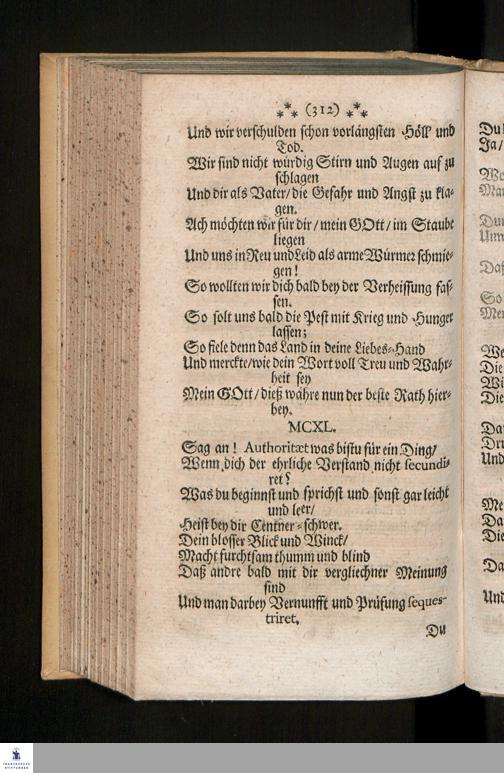 ⁂ (312) ⁂
Und wir verschulden schon vorlängsten Höll' und
Tod.
Wir sind nicht würdig Stirn und Augen auf zu
schlagen
Und dir als Vater/die Gefahr und Angst zu kla-
gen.
Ach möchten wir für dir/mein GOtt/im Staube
liegen
Und uns in Reu und Leid als arme Würmer schmie-
gen!
So wollten wir dich bald bey der Verheissung fas-
sen.
So solt uns bald die Pest mit Krieg und Hunger
lassen;
So fiele denn das Land in deine Liebes-Hand
Und merckte/wie dein Wort voll Treu und Wahr-
heit sey
Mein GOtt/dieß währe nun der beste Rath hier-
bey.
MCXL.
Sag an! Authoritæt was bistu für ein Ding/
Wenn dich der ehrliche Verstand nicht secundi-
ret?
Was du beginnst und sprichst und sonst gar leicht
und leer/
Heist bey dir Centner-schwer.
Dein blosser Blick und Winck/
Macht furchtsam thumm und blind
Daß andre bald mit dir vergliechner Meinung
sind
Und man darbey Vernunfft und Prüfung seques-
triret.
Du
Ja/
Die
Die
Und
Da
Die
Und
FRANCKESCHE
STIFTUNGEN